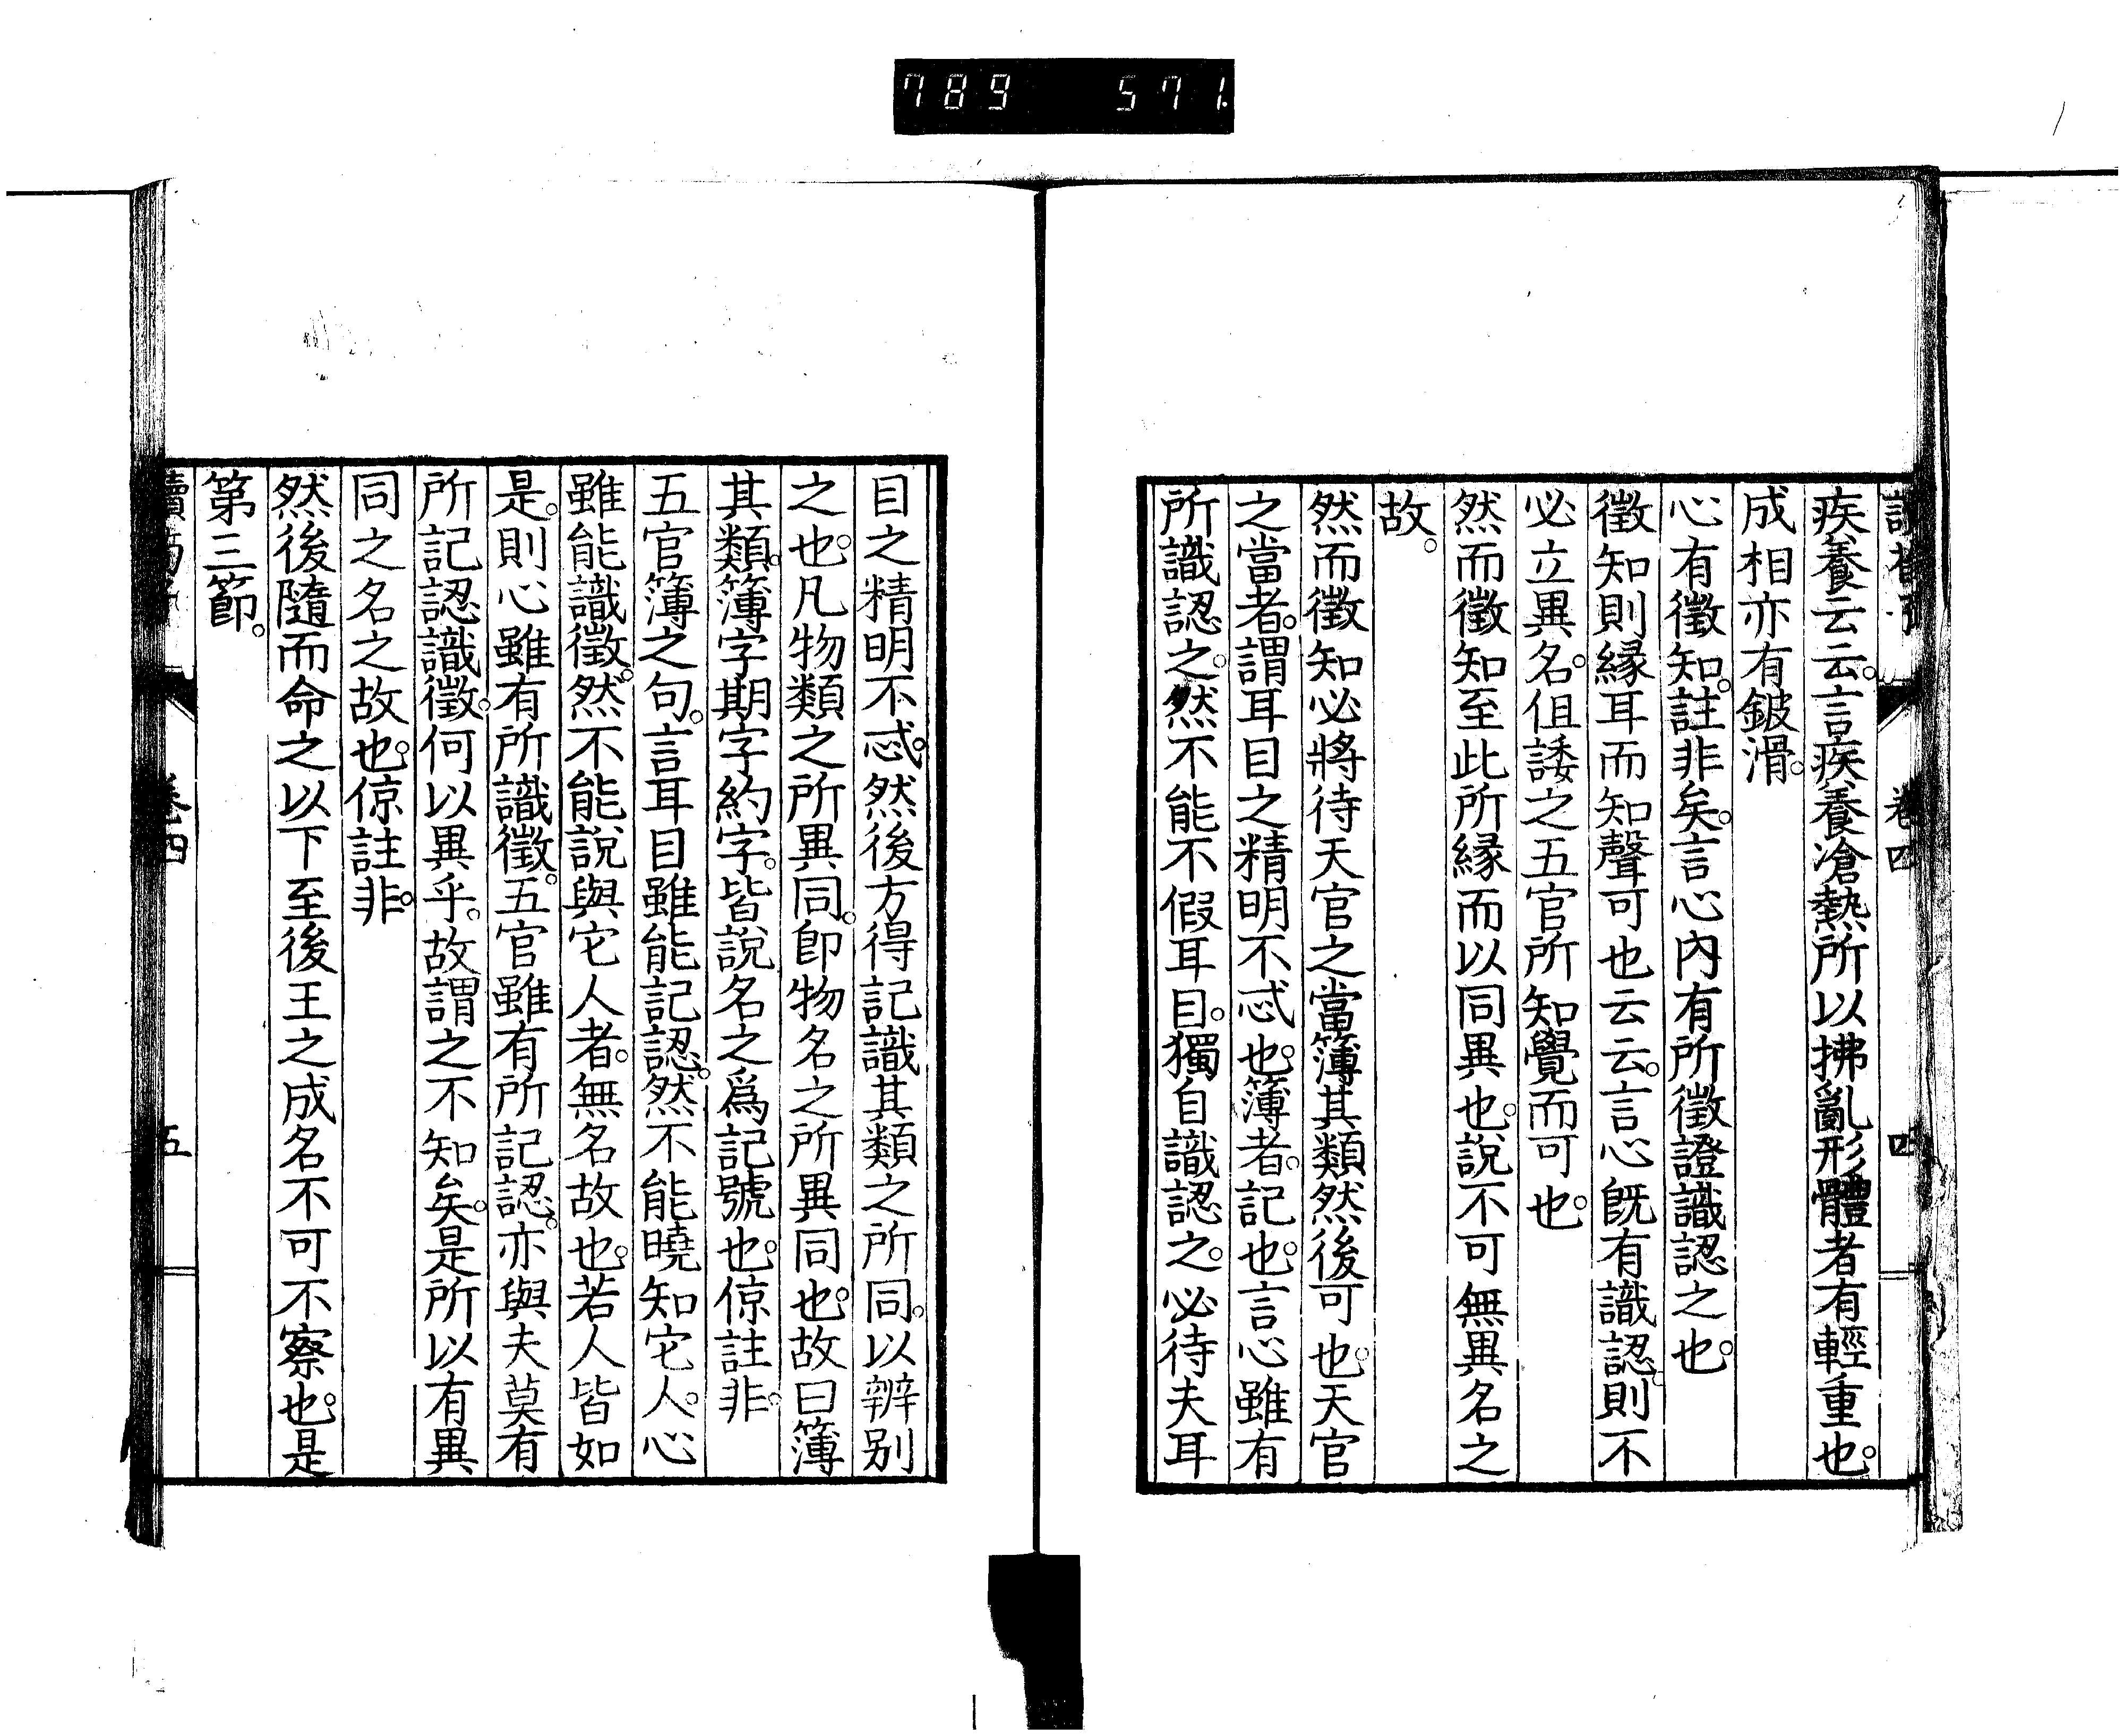 789 571
卷四 四
疾養云云。言疾養凔熱所以拂亂形體者有輕重也。
成相亦有鈹滑。
心有徵知。註非矣。言心內有所徵證識認之也。
徵知則緣耳而知聲可也云云。言心旣有識認。則不
必立異名。但諉之五官所知覺而可也。
然而徵知至此所緣而以同異也。說不可無異名之
故。
然而徵知必將待天官之當簿其類然後可也。天官
之當者。謂耳目之精明不忒也。簿者。記也。言心雖有
所識認之。然不能不假耳目。獨自識認之。必待夫耳
目之精明不忒。然後方得記識其類之所同。以辨別
之也。凡物類之所異同。卽物名之所異同也。故曰簿
其類。簿字期字約字。皆說名之爲記號也。倞註非。
五官簿之句。言耳目雖能記認。然不能曉知它人。心
雖能識徵。然不能說與它人者。無名故也。若人皆如
是。則心雖有所識徵。五官雖有所記認。亦與夫莫有
所記認識徵。何以異乎。故謂之不知矣。是所以有異
同之名之故也。倞註非。
然後隨而命之以下至後王之成名不可不察也。是
第三節。
卷四 五